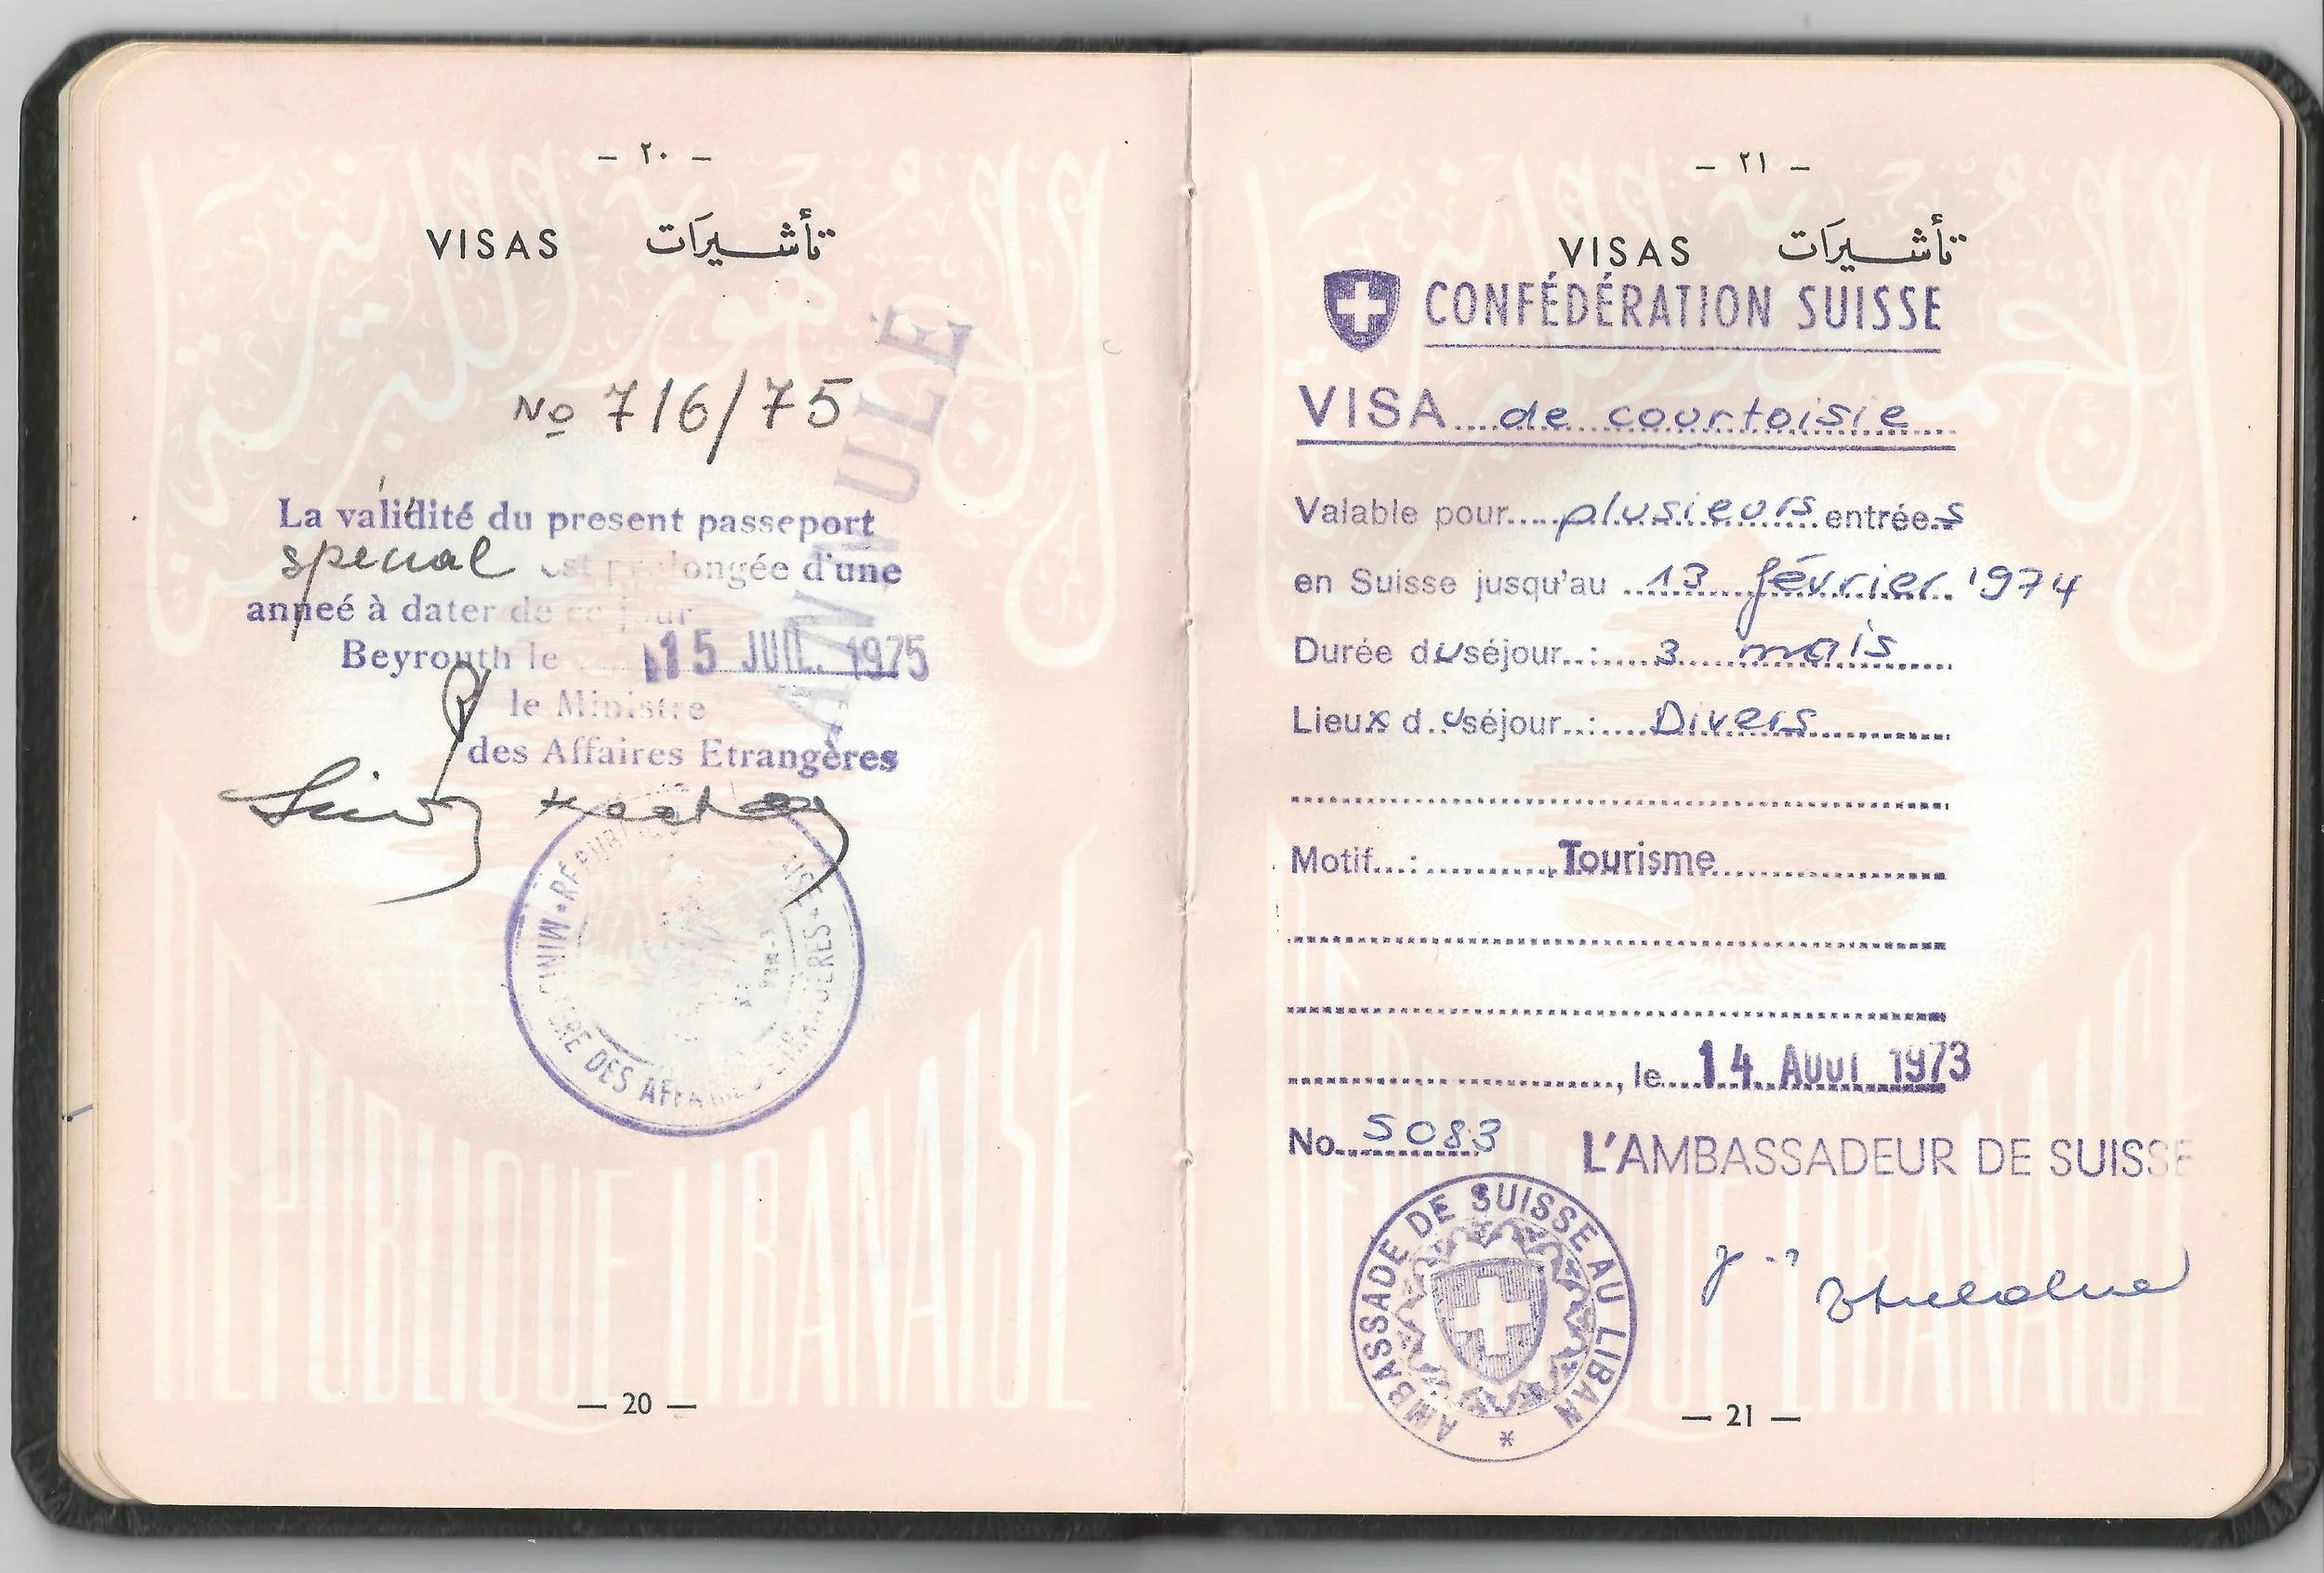 — ٢٠ —
VISAS تأشيرات
ANNULÉ
No 716/75
La validité du present passeport
special est prolongée d'une
anneé à dater de ce jour
Beyrouth le 15 JUIL. 1975
le Ministre
des Affaires Etrangères
RÉPUBLIQUE LIBANAISE
MINISTÈRE DES AFFAIRES ETRANGÈRES
الجمهورية اللبنانية
REPUBLIQUE LIBANAISE
— 20 —
— ٢١ —
VISAS تأشيرات
CONFÉDÉRATION SUISSE
VISA de courtoisie
Valable pour plusieurs entrées
en Suisse jusqu'au 13 février 1974
Durée du séjour : 3 mois
Lieux du séjour : Divers
Motif : Tourisme
, le 14 Aout 1973
No. 5083 L'AMBASSADEUR DE SUISSE
AMBASSADE DE SUISSE AU LIBAN *
الجمهورية اللبنانية
REPUBLIQUE LIBANAISE
— 21 —